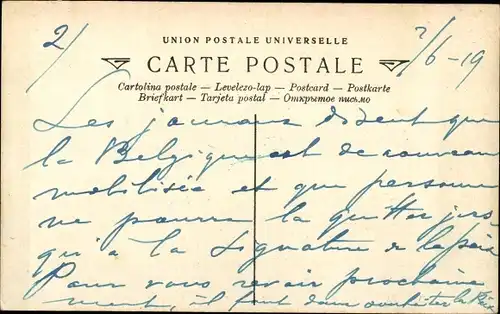 2/
UNION POSTALE UNIVERSELLE
CARTE POSTALE
7/6-19
Cartolina postale — Levelezo-lap — Postcard — Postkarte
Briefkart — Tarjeta postal — Открытое письмо
Les journaux disent que
la Belgique est de nouveau
mobilisée et que personne
ne pourra la quitter jus
qu'à la signature de la paix
Pour vous revoir prochaine
ment, il faut donc souhaiter la Paix